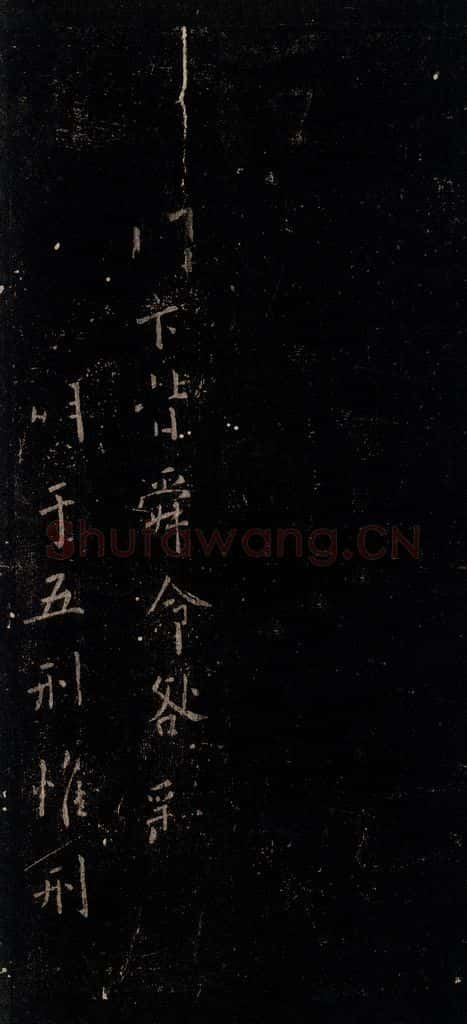 門下昔舜命咎
明于五刑惟刑
Shufawang.CN